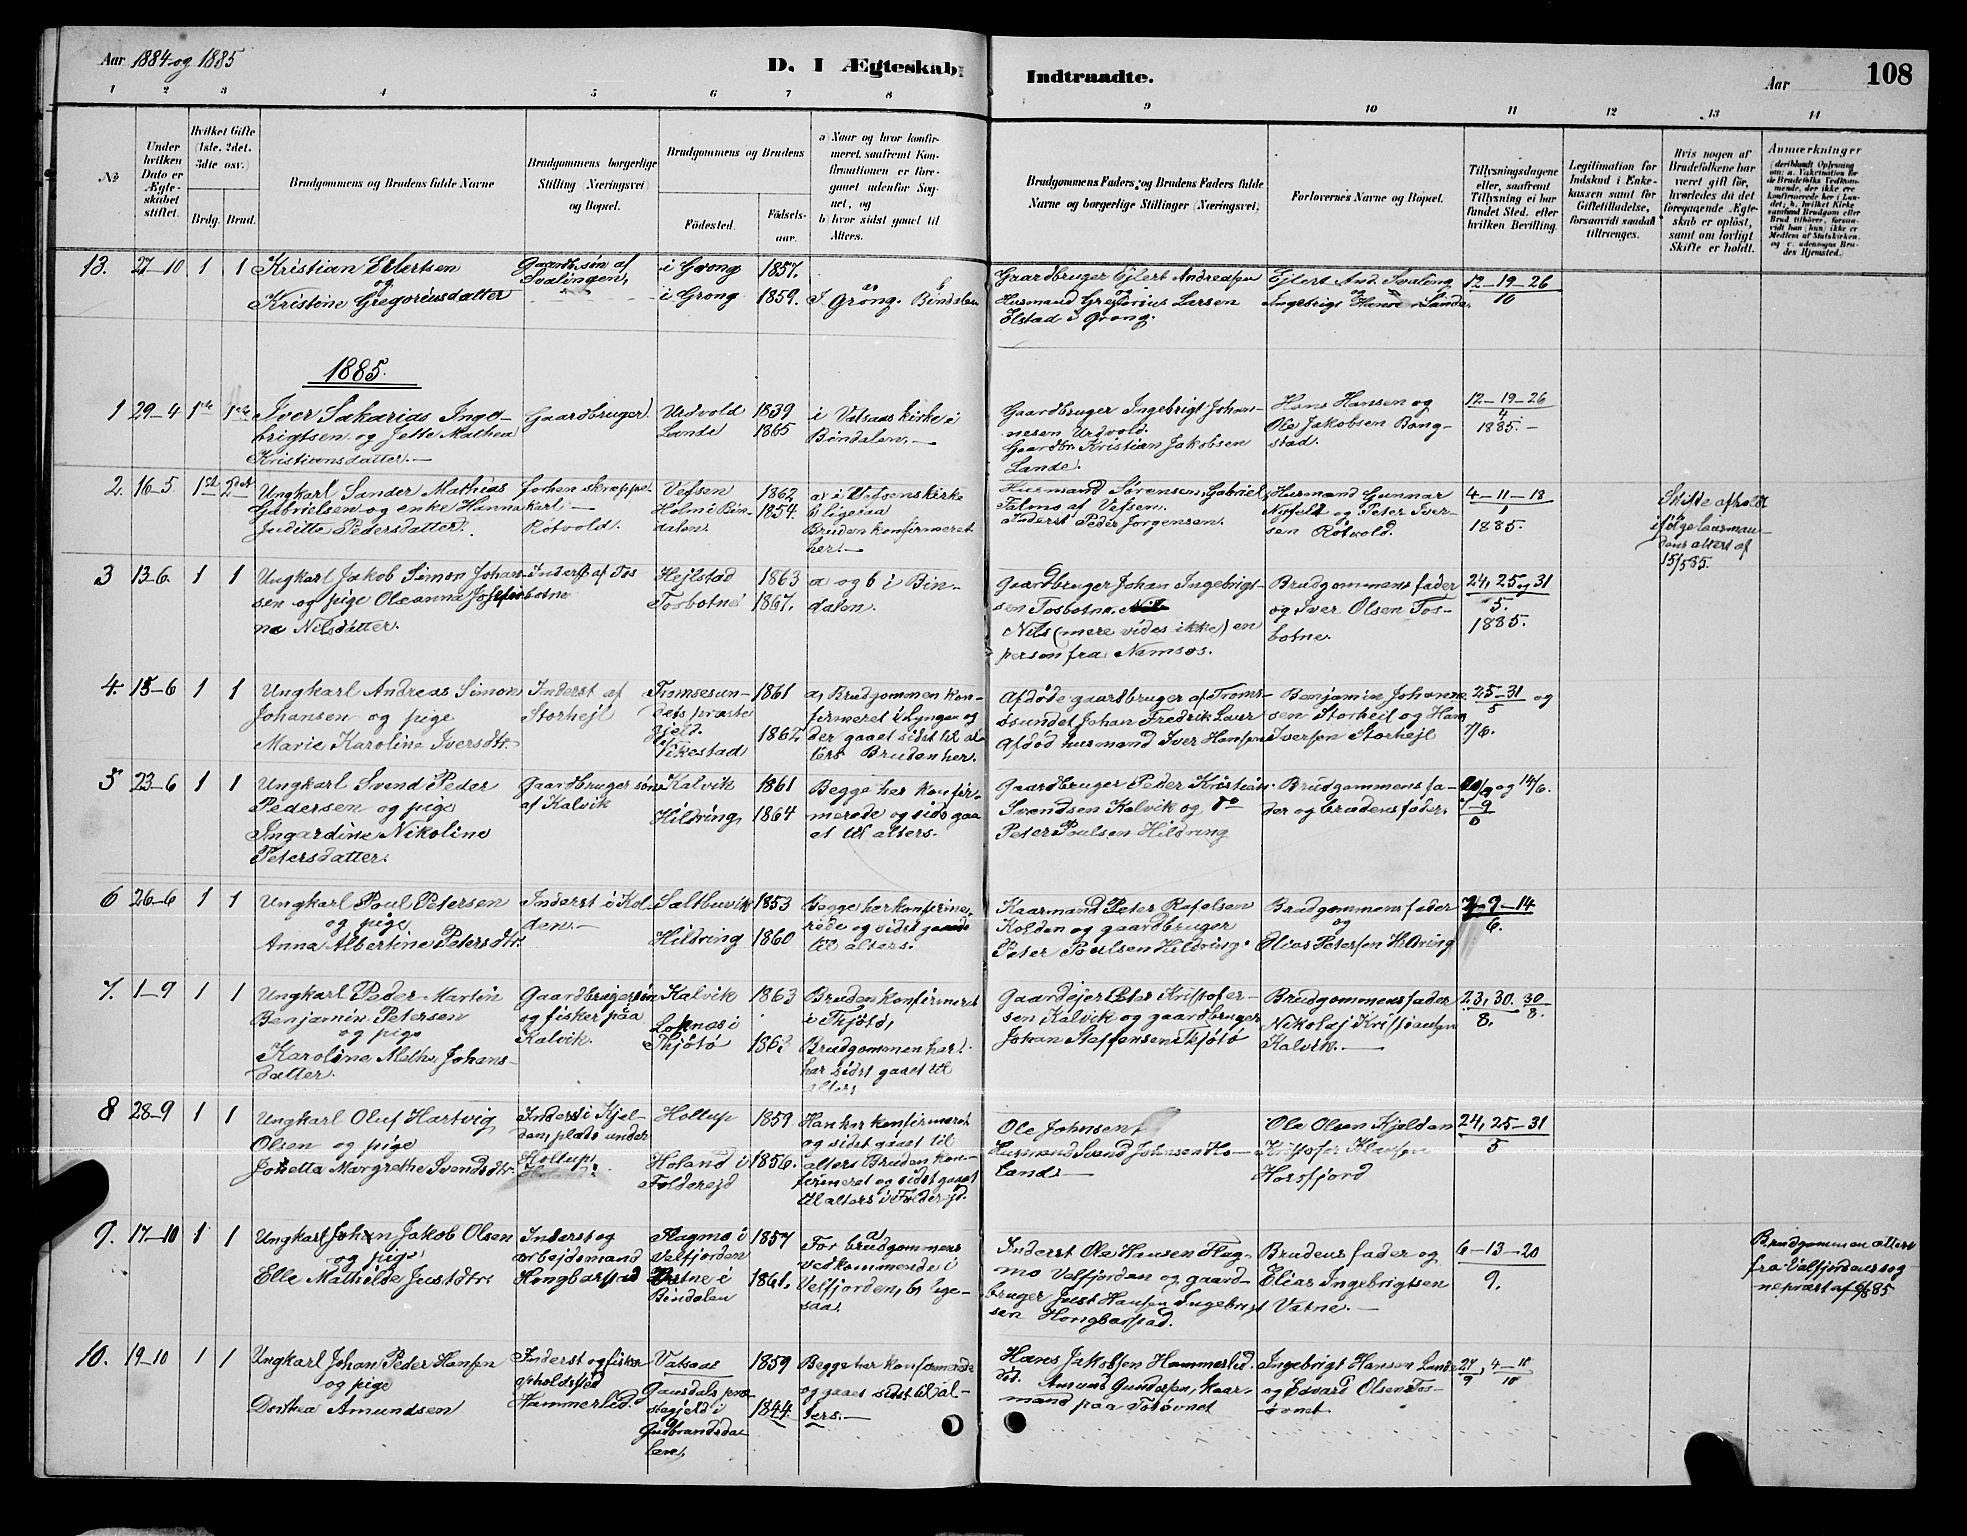 Aar 1884 og 1885
D. I Ægteskab
Indtraadte.
Aar
108
1 2 3 4 5 6 7 8 9 10 11 12 13 14
No
Under hvilken Dato er Ægteskabet stiftet.
Hvilket Gifte (1ste. 2det. 3dte osv.)
Brdg. Brud.
Brudgommens og Brudens fulde Navne
Brudgommens borgerlige Stilling (Næringsvei) og Bopæl.
Brudgommens og Brudens
Födested. Födselsaar.
a) Naar og hvor konfirmeret, saafremt Konfirmationen er foregaaet udenfor Sognet, og
b) hvor sidst gaaet til Alters.
Brudgommens Faders og Brudens Faders fulde Navne og borgerlige Stillinger (Næringsvei)
Forlovernes Navne og Bopæl.
Tillysningsdagene eller, saafremt Tillysning ei har fundet Sted, efter hvilken Bevilling.
Legitimation for Indskud i Enkekassen samt for Giftetilladelse, forsaavidt saadan tiltrænges.
Hvis nogen af Brudefolkene har været gift för, hvorledes da det foregaaende Ægteskab er oplöst, samt om lovligt Skifte er holdt.
Anmærkninger
13. 27-10 1 1 Kristian Eilertsen
og
Kristine Gregoriusdatter
Gaardbr.søn af Svalingen,
i Grong 1857.
i Grong 1859. I Grong. Bindalen
Gaardbruger Ejlert Andreasen
Husmand Gregorius Larsen
Elstad i Grong.
Ejlert And. Svaling
og
Ingebrigt Hansen Lande.
12-19-26
10
1885.
1 29-4 1ste 1ste Iver Sakarias Ingebrigtsen og Jette Mathea
Kristiansdatter.-
Gaardbruger
Urdvold 1839
Lande 1865
i Vatsaas kirke i
Bindalen.-
Gaardbruger Ingebrigt Johannesen Urdvold.
Gaardbr. Kristian Jakobsen
Lande.
Hans Hansen og
Ole Jakobsen Bangstad.
12-19-26
4
1885.-
2. 16-5 1ste 2det Ungkarl Sander Mathias
Gabrielsen og enke Hanna
Juditte Pedersdatter.
forhen skræppekarl -
Rötvold.
Vefsen 1862
Holm i Bindalen. 1854.
a) i Vefsens kirke
b) ligesaa
Bruden konfirmeret
her.-
Husmand Sørensen Gabriel
af Vefsen.
Inderst Peder Jorgensen.
Husmand Gunnar
og Peter Iversen Rötvold.
4-11-18
1
1885.
Skifte afholdt
ifølge lensmandens attest af
15/5 85.
3 13-6. 1 1 Ungkarl Jakob Simon Johansen og pige Oleanna Josefina Nilsdatter.
Inderst af Tosbotne
Hejlstad 1863
Tosbotne 1867.
a og b i Bindalen.
Gaardbruger Johan Ingebrigtsen Tosbotne.
Nils (mere vides ikke) en
person fra Namsos.
Brudgommens fader
og Iver Olsen Tosbotne.
24, 25 og 31
5.
1885.
4. 15-6 1 1 Ungkarl Andreas Simon
Johansen og pige
Marie Karoline Iversdtr.
Inderst af
Storhejl
Tromsesundets præstegjeld. 1861
Vikestad 1862.
a, Brudgommen konfirmeret i Lyngen og
der gaaet sidst til alters Bruden her.
Afdöde gaardbruger af Tromsösundet Johan Fredrik Laur
Afdöd husmand Iver Hansen
Benjamin Johannesen Storheil og Hans
Iversen Storhejl
25-31 og
5
7/6.
5 23-6 1 1 Ungkarl Svend Peder
Pedersen og pige
Ingardine Nikoline
Petersdatter.
Gaardbruger søn
af Kalvik
Kalvik 1861
Hildring, 1864
Begge her konfirmerede og sidst gaaet til alters.
Gaardbruger Peder Kristian
Svendsen Kalvik og do
Peter Poulsen Hildring
Brudgommens fader og brudens fader.
og 14/6.
7-9
6
6 26-6 1 1 Ungkarl Poul Petersen
og pige
Anna Albertine Petersdtr.
Inderst i Kolden.-
Saltbuvik 1853
Hildring 1860
Begge her konfirmerede og sidst gaaede
til alters.
Kaarmand Peter Rafelsen
Kolden og gaardbruger
Peter Poulsen Hildring.
Brudgommens fader
og
Elias Petersen Hildring
7-9-14
6.
7. 1-9 1 1 Ungkarl Peder Martin
Benjamin Petersen
og pige
Karoline Methe Johansdatter.
Gaardbrugersön
og fisker paa
Kalvik.
Kalvik 1863
Tkjötö 1863
Bruden konfirmeret
i Tkjötö,
Brudgommen her.
har sidst gaaet til
alters,
Gaardejer Peter Kristofersen Kalvik og gaardbruger
Johan Steffensen Tkjötö
Brudgommens fader
Nikolaj Kristiansen
Kalvik.-
23, 30. 30/8.
8.
8 28-9 1 1 Ungkarl Oluf Hartvig
Olsen og pige
Jonetta Margrethe Svendsdtr.
Inderst i Kjelden, plads under
Hollup,
Hollup 1859
Holand i 1856.
Folderejd
Han her konfirmeret
og sidst gaaet til
alters Bruden konfirmeret og sidst gaaet
til alters i Folderejd.
Ole Johnsen
Husmand Svend Johnsen Holand.-
Ole Olsen Kjelden
Kristofer Klausen
Horsfjord
24, 25-31
5
9. 17-10 1 1 Ungkarl Johan Jakob Olsen
og pige
Elle Mathilde Justdtr.
Inderst og
arbejdsmand
Hongbarstad
Flagmo i 1857
Velfjorden
Vatne i 1861.
Bindalen
For brudgommens
vedkommende i
Velfjorden, b, ligesaa.
Inderst Ole Hansen Flagmo Velfjorden og gaardbruger Just Hansen Ingebrigtsen Hongbarstad.
Brudens fader og
Elias Ingebrigtsen
Vatne.-
6-13-20
9.
Brudgommen attest
fra Velfjordens sogneprest af
10. 19-10 1 1 Ungkarl Johan Peder Hansen
og pige
Dorthea Amundsen
Inderst og fisker
opholdssted
Hammerlid.
Vatsaas 1859
Gausdals præstegjeld i 1844
Gudbrandsdalen,
Begge her konfirmerede
og gaaet sidst til alters.-
Hans Jakobsen Hammerlid.
död. Amund Gundersen, kaarmand paa Tosövnet
Ingebrigt Hansen Lande
og Edvard Olsen Tosövnet
27/9, 4-11
10